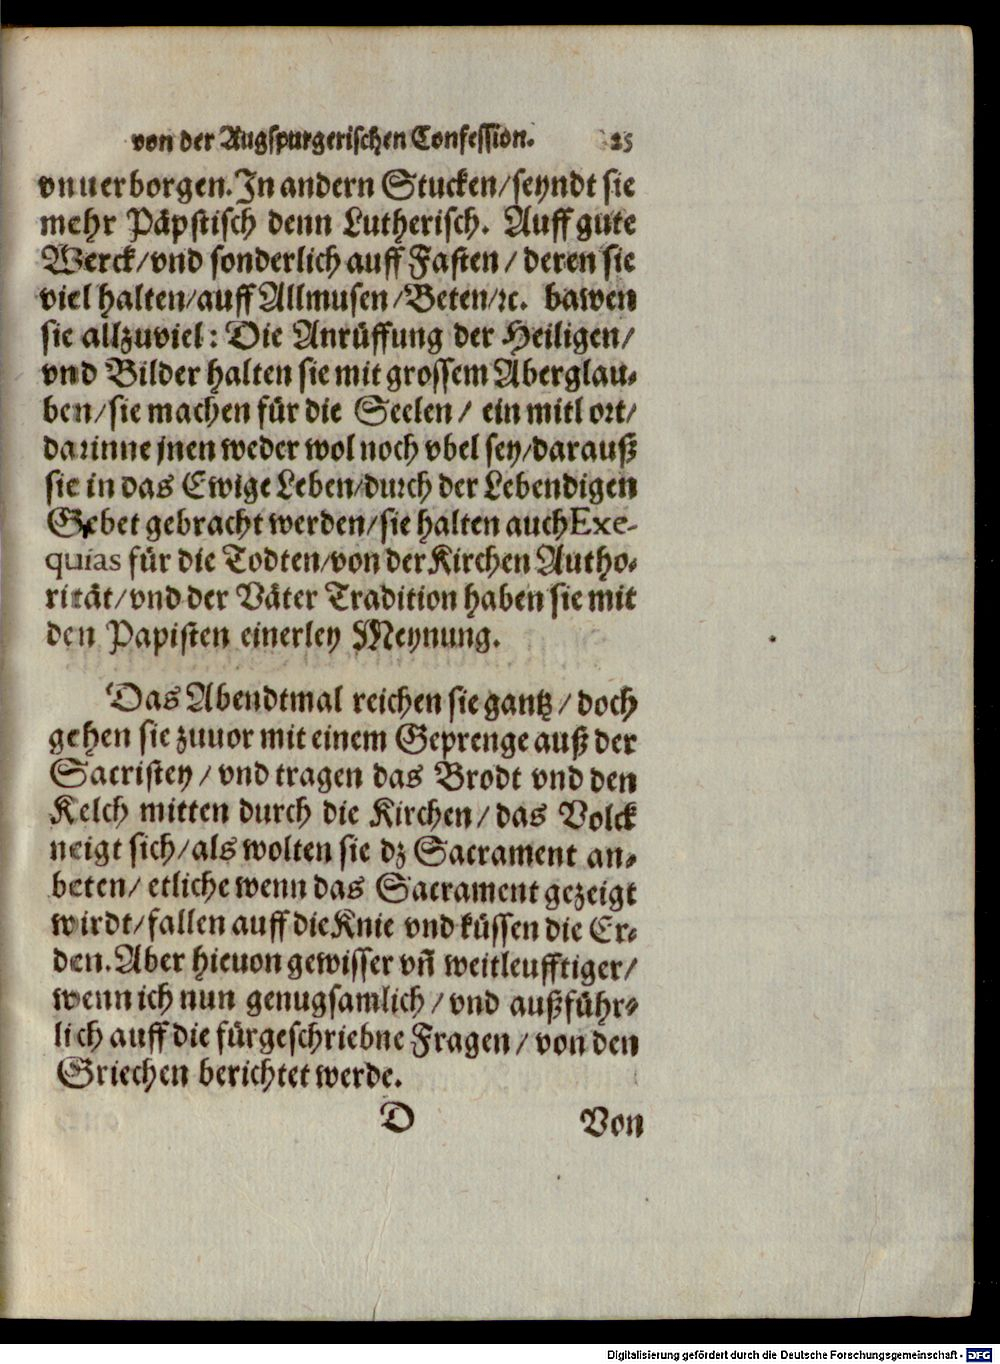 von der Augspurgerischen Confession. 25
vnuerborgen. In andern Stucken/seyndt sie
mehr Päpstisch denn Lutherisch. Auff gute
Werck/vnd sonderlich auff Fasten/ deren sie
viel halten/auff Allmusen/Beten/ꝛc. bawen
sie allzuviel: Die Anrüffung der Heiligen/
vnd Bilder halten sie mit grossem Aberglau-
ben/sie machen für die Seelen/ ein mitl ort/
darinne jnen weder wol noch vbel sey/darauß
sie in das Ewige Leben/durch der Lebendigen
Gebet gebracht werden/sie halten auch Exe-
quias für die Todten/von der Kirchen Autho-
rität/vnd der Väter Tradition haben sie mit
den Papisten einerley Meynung.
Das Abendtmal reichen sie gantz/ doch
gehen sie zuuor mit einem Geprenge auß der
Sacristey/ vnd tragen das Brodt vnd den
Kelch mitten durch die Kirchen/ das Volck
neigt sich/als wolten sie dz Sacrament an-
beten/ etliche wenn das Sacrament gezeigt
wirdt/fallen auff die Knie vnd küssen die Er-
den. Aber hieuon gewisser vñ weitleufftiger/
wenn ich nun genugsamlich/ vnd außführ-
lich auff die fürgeschriebne Fragen/ von den
Griechen berichtet werde.
D Von
Digitalisierung gefördert durch die Deutsche Forschungsgemeinschaft - DFG